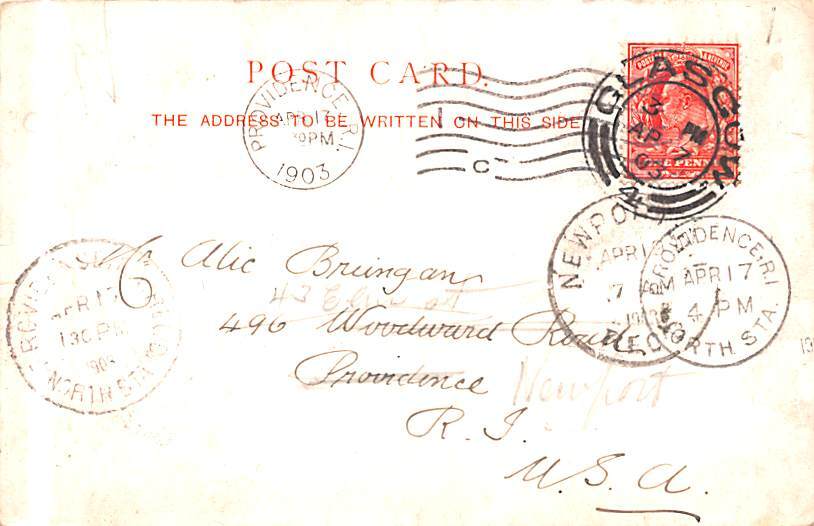 POST CARD.
THE ADDRESS TO BE WRITTEN ON THIS SIDE
PROVIDENCE, R.I.
APR 17
PM
1903
C
POSTAGE & REVENUE
ONE PENNY
GLASGOW
AP 7
03
4
NEWPORT
APR 17
7 PM
REC'D
PROVIDENCE, R.I.
APR 17
4 PM
NORTH STA.
APR 17
130 PM
1903
NORTH STA.
Alic
43
496 Woodward Road
Providence Newport
R. I.
U. S. A.